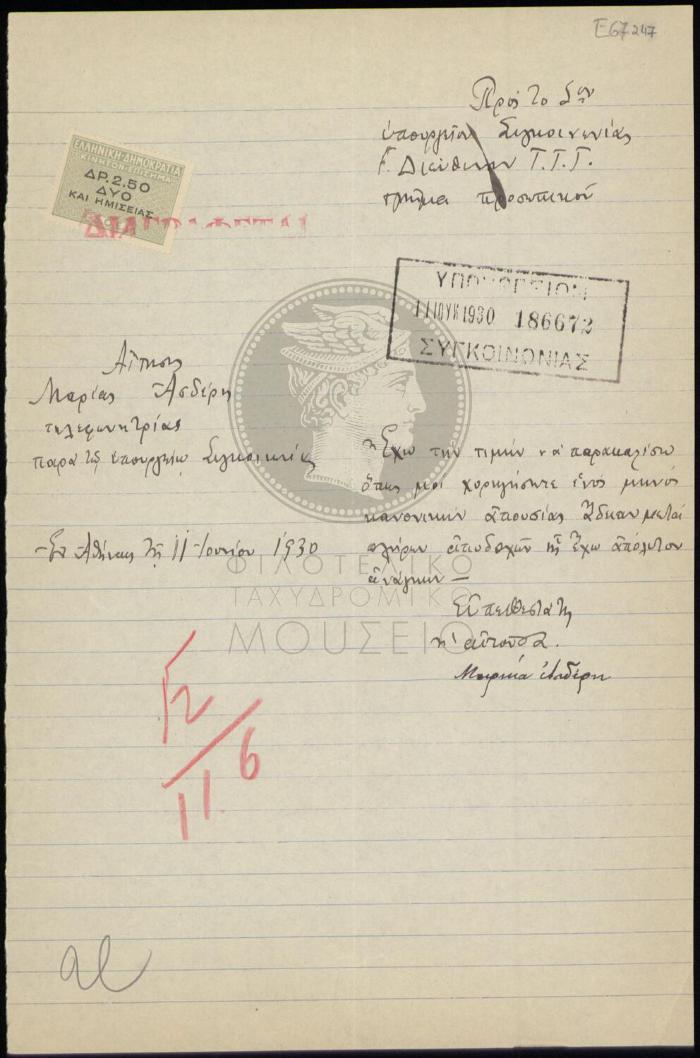 E67247
Πρός το Σον
ὑπουργεῖον Συγκοινωνίας
Διεύθυνσιν Τ.Τ.Τ.
τμῆμα προσωπικοῦ
ΕΛΛΗΝΙΚΗ ΔΗΜΟΚΡΑΤΙΑ
ΚΙΝΗΤΟΝ ΕΠΙΣΗΜΑ
ΔΡ. 2.50
ΔΥΟ
ΚΑΙ ΗΜΙΣΕΙΑΣ
ΥΠΟΥΡΓΕΙΟΝ
11 ΙΟΥΝ 1930 186672
ΣΥΓΚΟΙΝΩΝΙΑΣ
Αἴτησις
Μαρίας Ἀσδέρη
τηλεφωνητρίας
παρὰ τῷ ὑπουργείῳ Συγκοινωνίας
Ἐν Ἀθήναις τῇ 11 Ἰουνίου 1930
Ἔχω τὴν τιμὴν νὰ παρακαλέσω
ὅπως μοι χορηγήσητε ἑνὸς μηνὸς
κανονικὴν ἀπουσίας ἄδειαν μετὰ
πλήρων ἀποδοχῶν ἧς ἔχω ἀπόλυτον
ἀνάγκην —
Εὐπειθεστάτη
ἡ αἰτοῦσα.
Μαρίκα Ἀσδέρη
ΦΙΛΟΤΕΛΙΚΟ
ΤΑΧΥΔΡΟΜΙΚΟ
ΜΟΥΣΕΙΟ
12
11 6